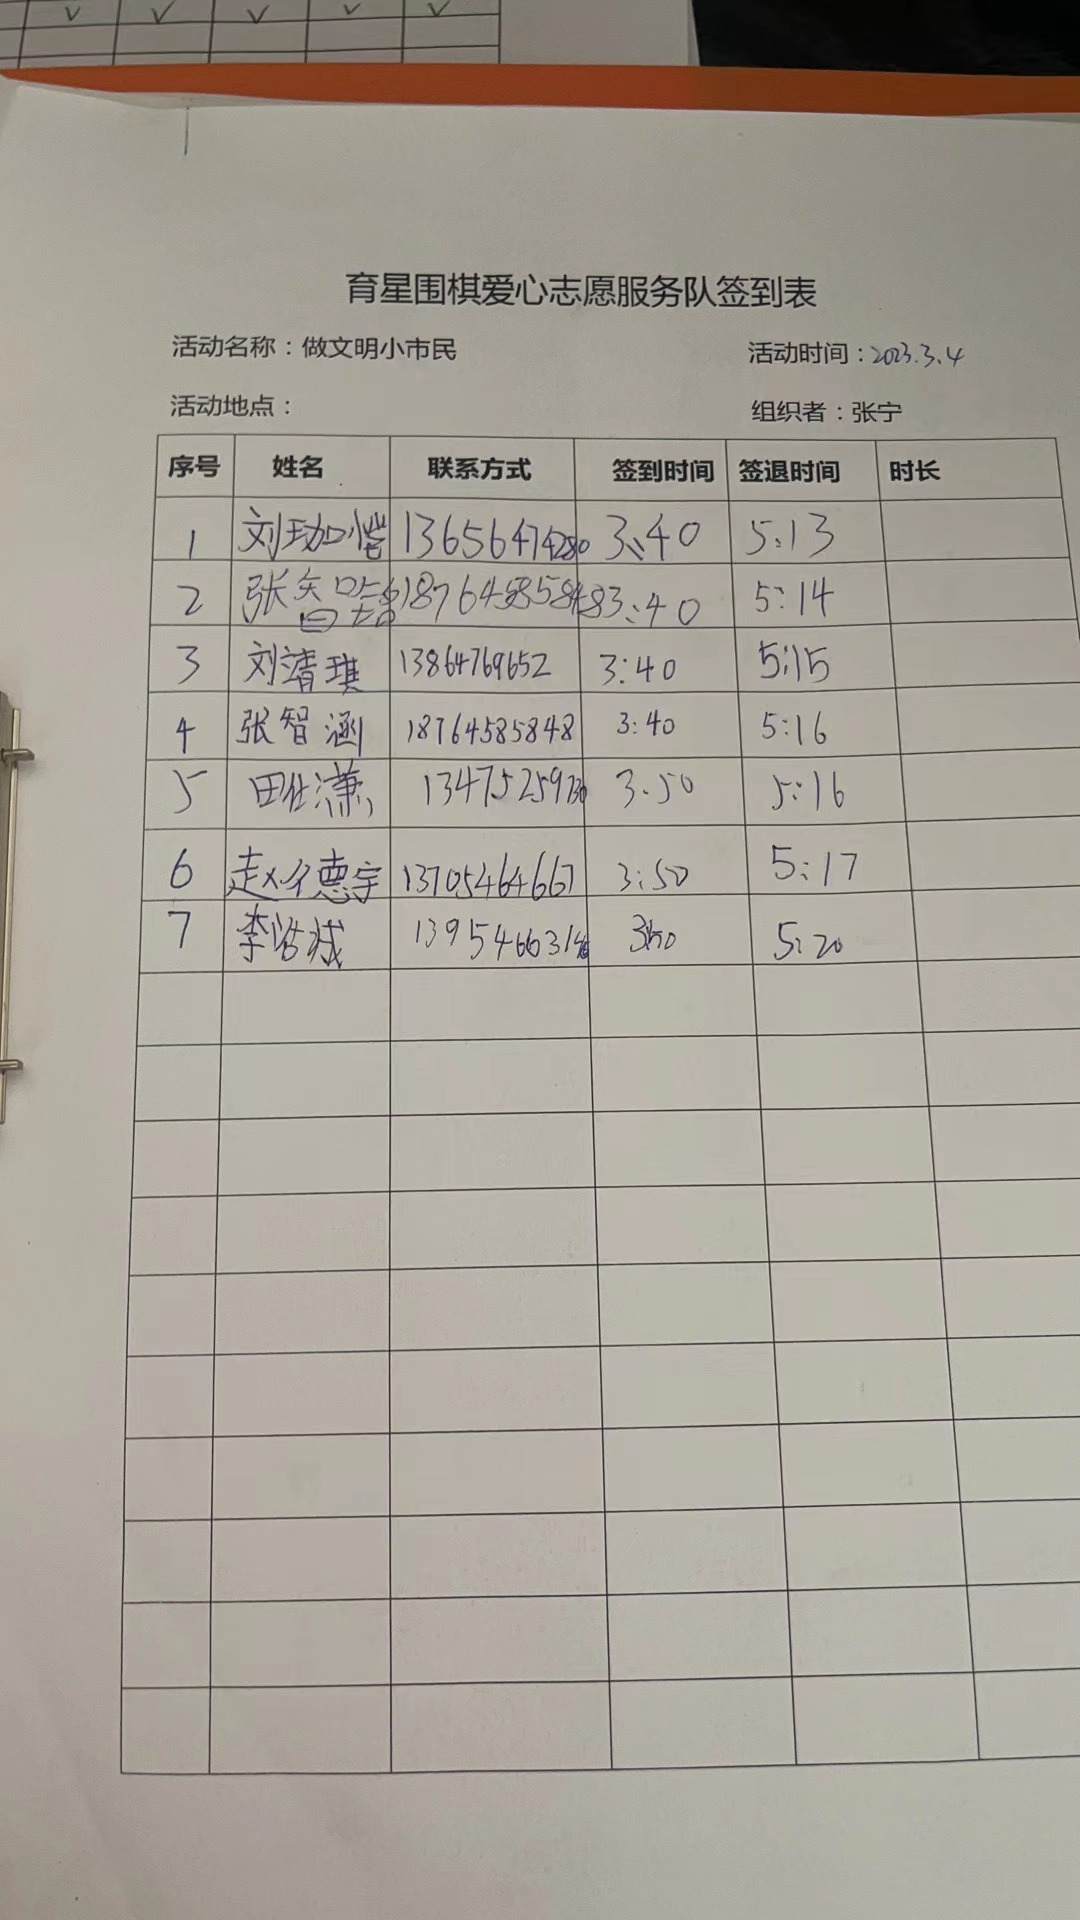 育星围棋爱心志愿服务队签到表
活动名称：做文明小市民 活动时间：2023.3.4
活动地点： 组织者：张宁
序号 姓名 联系方式 签到时间 签退时间 时长
1 刘珈恺 13656474280 3:40 5:13
2 张智喆 18764585848 3:40 5:14
3 刘靖琪 13864769652 3:40 5:15
4 张智涵 18764585848 3:40 5:16
5 田仕濂 13475259730 3:50 5:16
6 赵德宇 13705464667 3:50 5:17
7 李浩 5:20